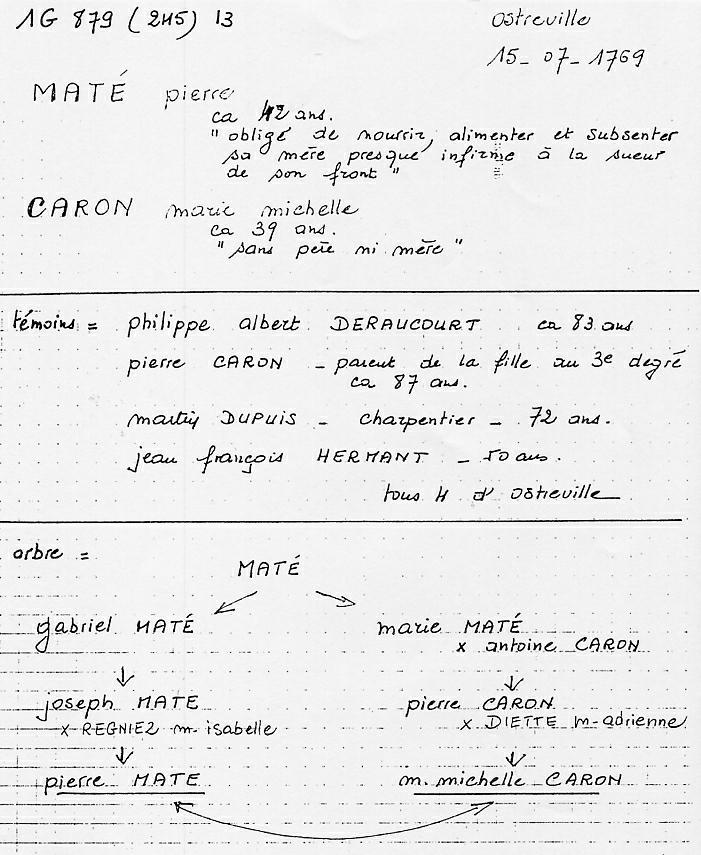 1G 879 (2H5) 13
Ostreville
15-07-1769
MATÉ pierre
ca 42 ans.
"obligé de nourrir, alimenter et subsenter
sa mère presque infirme à la sueur
de son front"
CARON marie michelle
ca 39 ans.
"sans père ni mère"
témoins = philippe albert DERAUCOURT ca 83 ans
pierre CARON - parent de la fille au 3e degré
ca 87 ans.
martin DUPUIS - charpentier - 72 ans.
jean françois HERMANT - 50 ans.
tous 4 d'Ostreville
arbre =
MATÉ
gabriel MATÉ marie MATÉ
x antoine CARON
joseph MATE pierre CARON
x REGNIEZ m. isabelle x DIETTE m-adrienne
pierre MATE m. michelle CARON